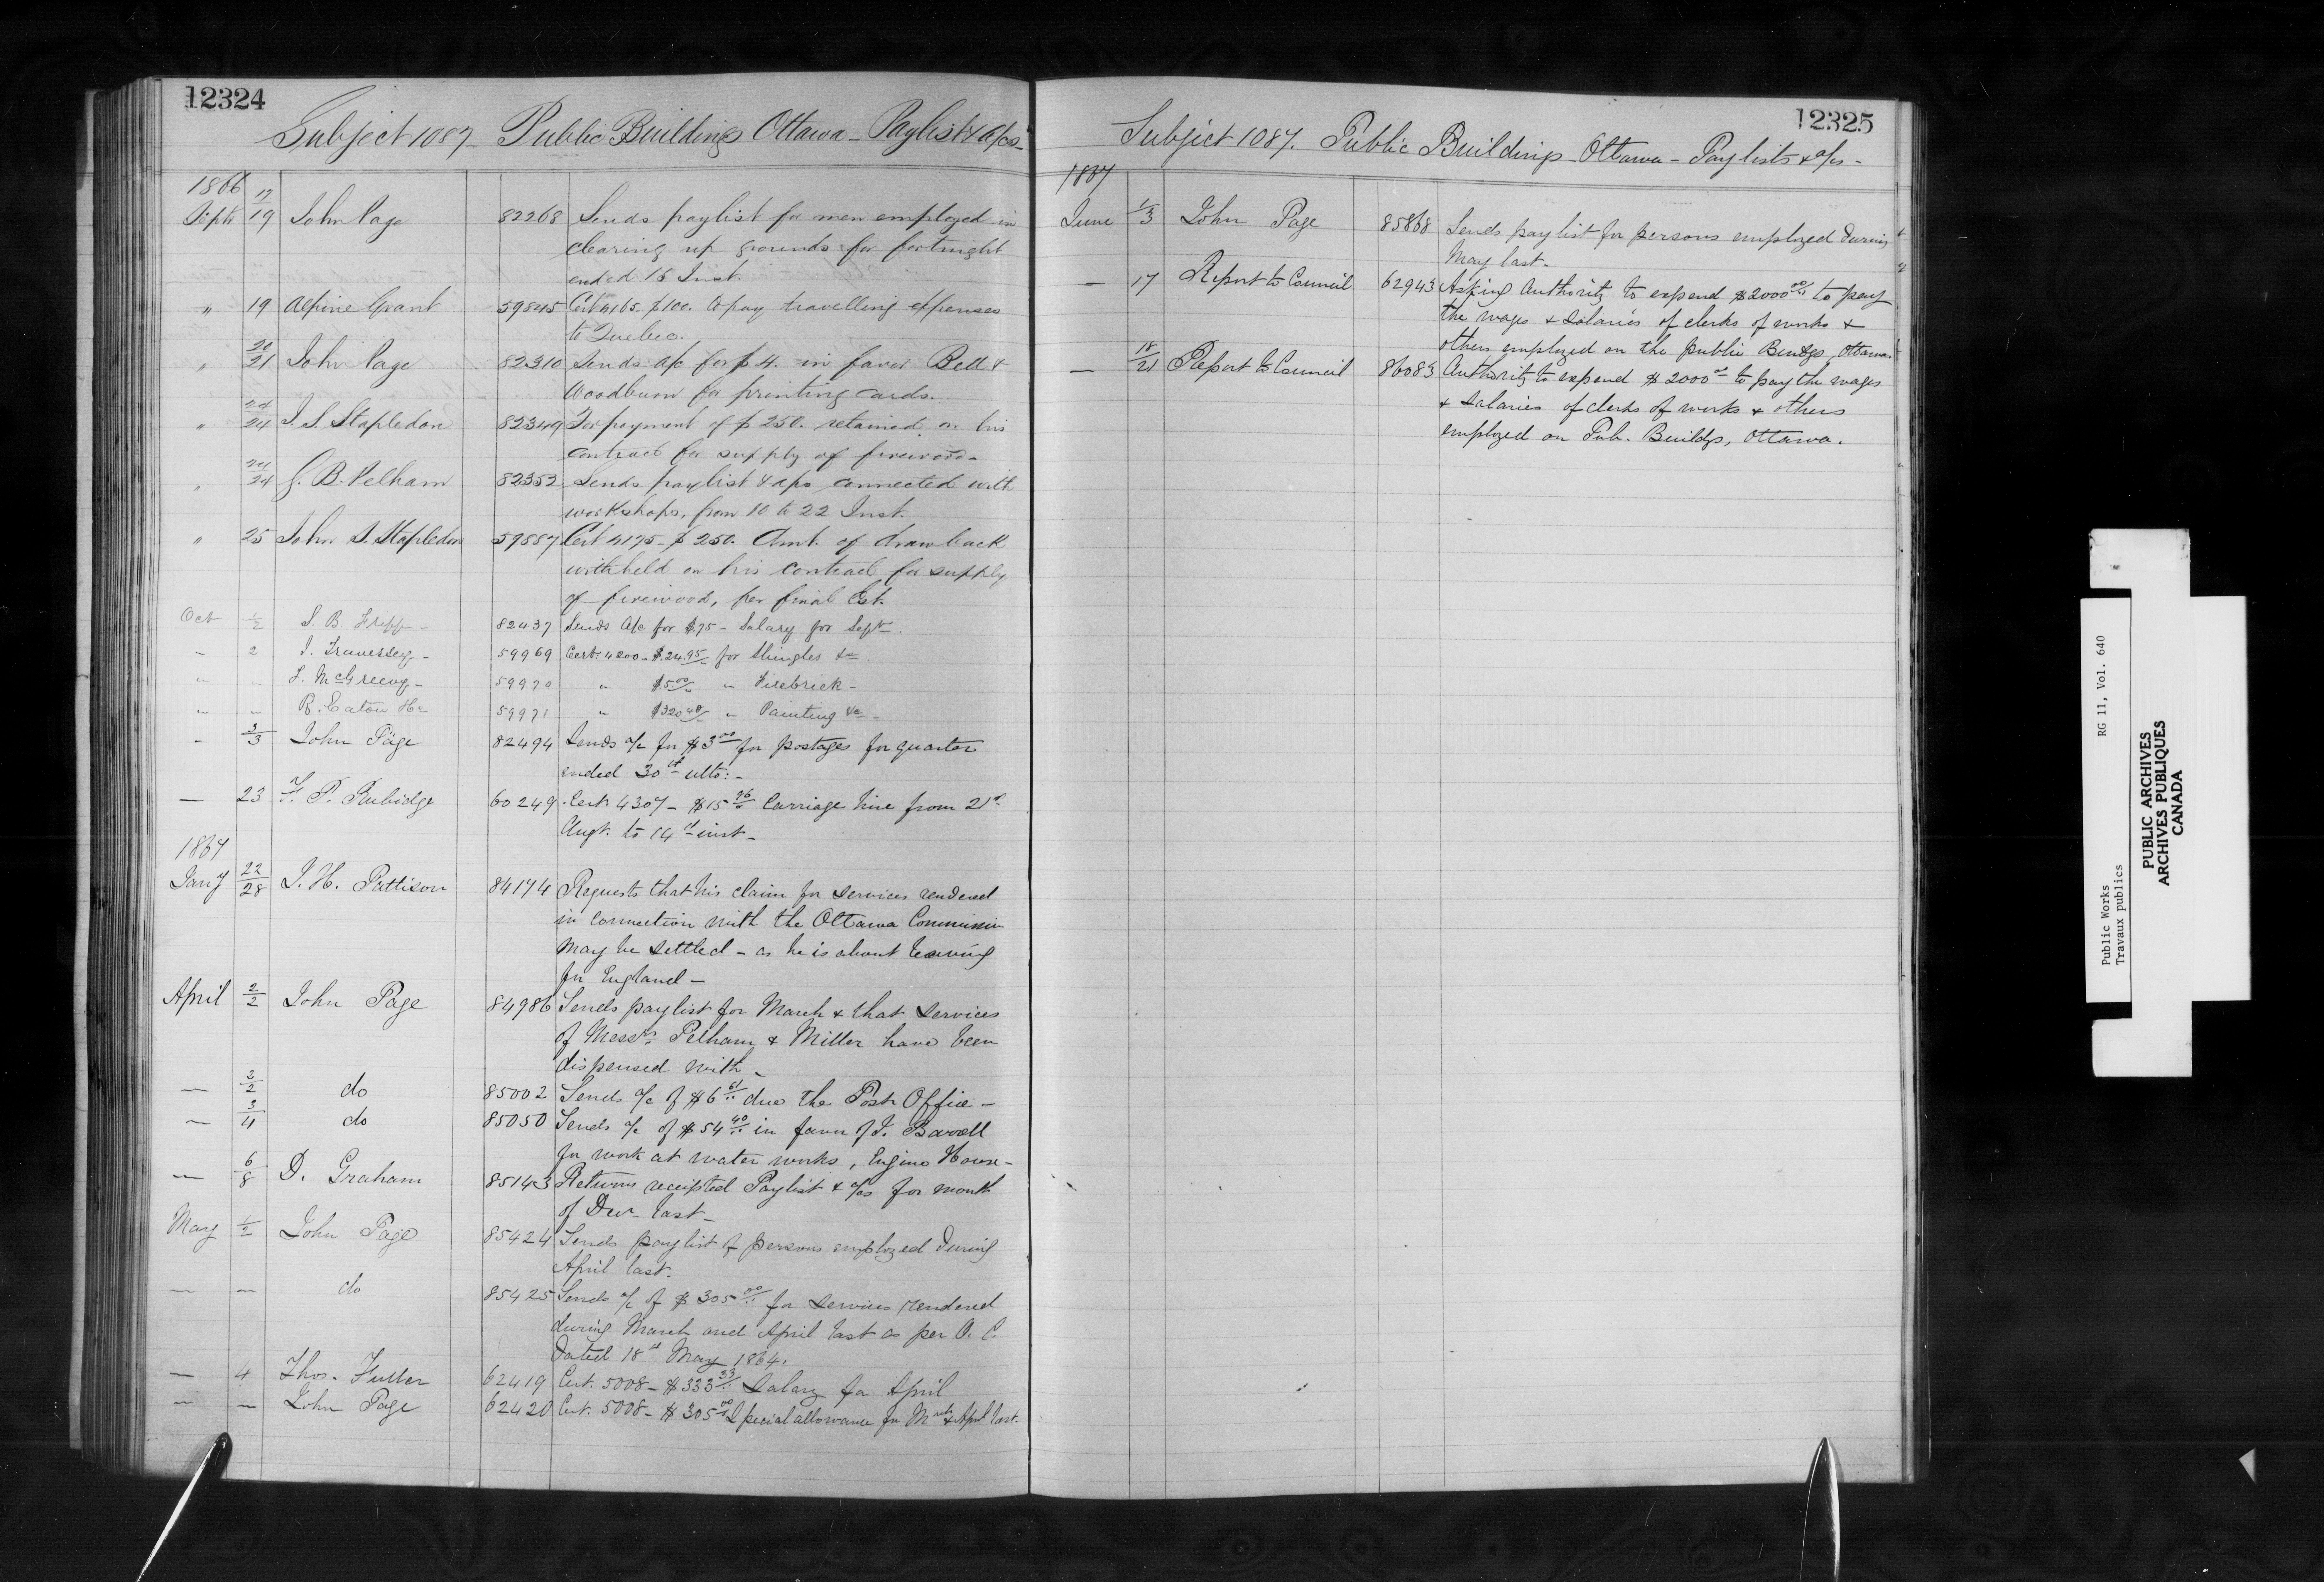 12324
Subject 1087 - Public Buildings Ottawa - Paylists & a/cs -
1866
Septr 17/19 John Page 82268 Sends paylist for men employed in
clearing up grounds for fortnight
ended 15 Inst.
" 19 Alpine Grant 59845 Cert 4165. $100. to pay travelling expenses
to Quebec.
" 20/21 John Page 82310 Sends a/c for $4. in favor Bell &
Woodburn for printing cards.
" 24/24 J. S. Stapledon 82349 For payment of $250. retained on his
contract for supply of firewood -
" 24/24 G. B. Pelham 82353 Sends paylist & a/cs connected with
workshops, from 10 to 22 Inst.
" 25 John S. Stapledon 59887 Cert 4175 - $250. Amt. of drawback
withheld on his contract for supply
of firewood, per final Est.
Oct 1/2 S. B. Fripp - 82437 Sends a/c for $75 - Salary for Sept.
- 2 J. Traversey - 59969 Cert. 4200 - $24.95 for Shingles &c
" " McGreevy - 59970 " $5.00 " Firebrick -
" " R. Eaton 59971 " $320.48 " Painting &c -
- 3/3 John Page 82494 Sends a/c for $3.00 for postages for quarter
ended 30th ulto: -
- 23 F. P. Rubidge 60249 Cert. 4307 - $15.96 Carriage hire from 21st
Augt. to 14th inst -
1867
Jany 22/28 J. H. Pattison 84174 Requests that his claim for services rendered
in connection with the Ottawa Commission
may be settled - as he is about leaving
for England -
April 2/2 John Page 84986 Sends paylist for March & that services
of Messrs Pelham & Miller have been
dispensed with -
- 2/2 do 85002 Sends a/c of $6.61 due the Post Office -
- 3/4 do 85050 Sends a/c of $54.40 in favor of J. Barrett
for work at water works, Engine House -
- 6/8 D. Graham 85143 Returns receipted Paylist & a/cs for month
of Decr last -
May 1/2 John Page 85424 Sends paylist of persons employed during
April last.
- - do 85425 Sends a/c of $305.00 for services rendered
during March and April last as per O. C.
dated 18th May 1864.
- 4 Thos. Fuller 62419 Cert. 5008 - $333.33 Salary for April
- - John Page 62420 Cert. 5008 - $305.00 Special allowance for Mrch & April last.
12325
Subject 1087. Public Buildings Ottawa - Paylists & a/cs -
1867
June 1/3 John Page 85868 Sends paylist for persons employed during
May last -
- 17 Report to Council 62943 Asking Authority to expend $2000.00 to pay
the wages & salaries of clerks of works &
others employed on the public Buildgs, Ottawa.
- 18/21 Report to Council 86083 Authority to expend $2000.00 to pay the wages
& salaries of clerks of works & others
employed on Pub. Buildgs, Ottawa.
Public Works RG 11, Vol. 640
Travaux publics
PUBLIC ARCHIVES
ARCHIVES PUBLIQUES
CANADA